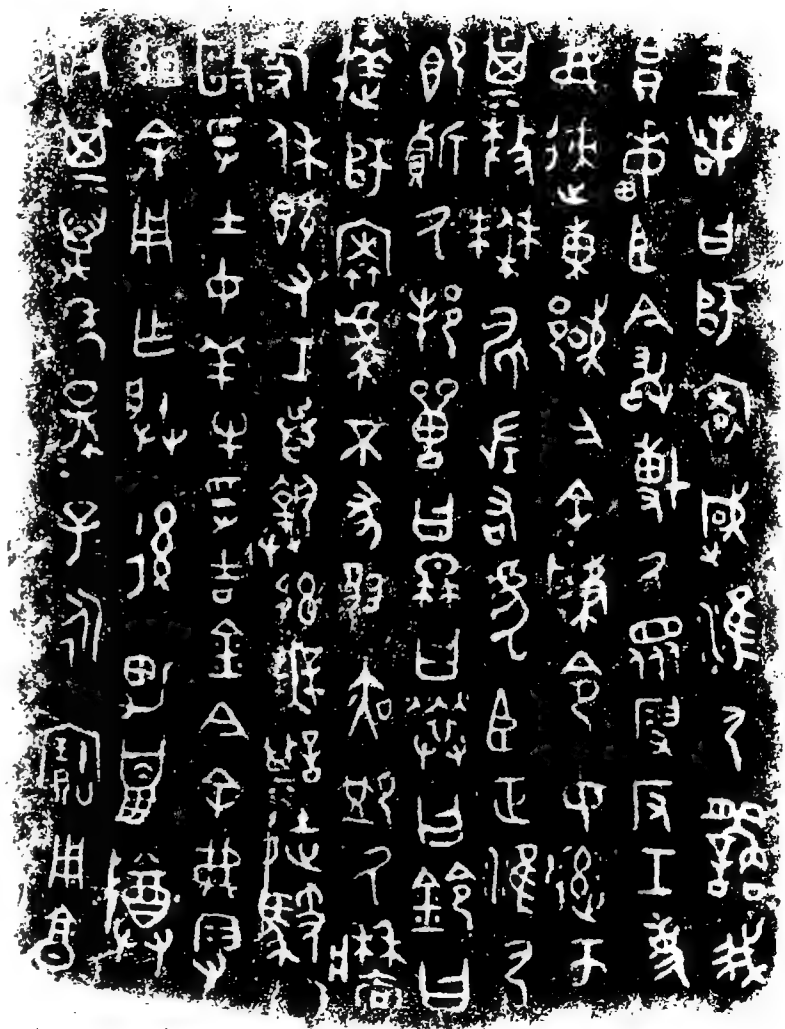 王若曰師㝨𢦏淮尸繇我
帛畮臣今敢博氒眾叚反工吏
弗速東域今余肇令女率齊帀
㠱𠭰僰㞋左右虎臣正淮尸
即質氒邦嘼曰冉曰𦀚曰鈴曰
達師㝨虔不㒸夙夜卹氒牆
事休既又工折首執訊無諆徒馭
毆孚士女羊牛孚吉金今余弗叚
組余用乍朕後男巤尊
𣪘其萬年孫子永寶用享